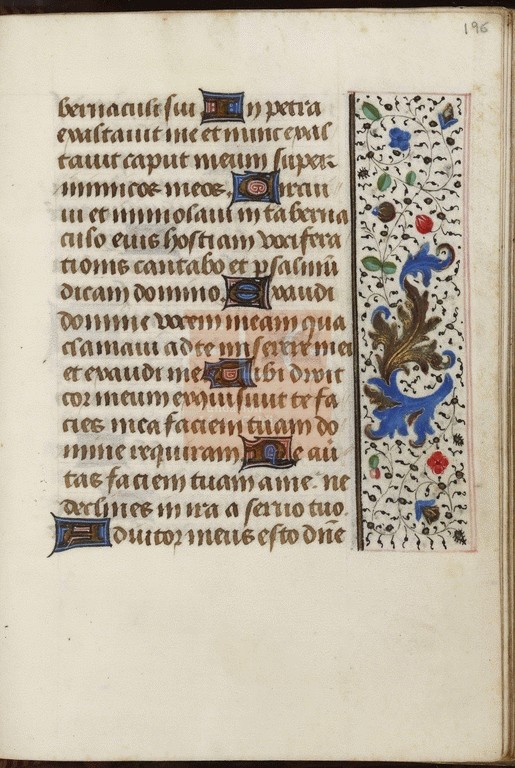 196
bernaculi sui In petra
exaltauit me et nunc exal
tauit caput meum super
inimicos meos. Circui
ui et immolaui in taberna
culo eius hostiam vocifera
tionis cantabo et psalmū
dicam domino. Exaudi
domine vocem meam qua
clamaui ad te miserere mei
et exaudi me. Tibi dixit
cor meum exquisiuit te fa
cies mea faciem tuam do
mine requiram Ne auer
tas faciem tuam a me. ne
declines in ira a seruo tuo.
Adiutor meus esto dn̄e